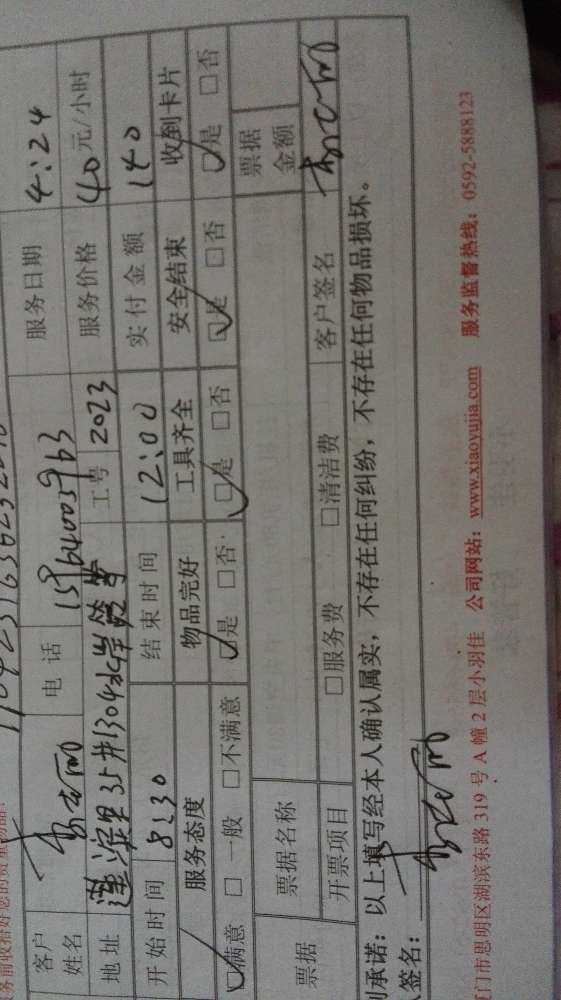 客户姓名 电话 服务日期 4:24
地址 工号 2023 服务价格 40元/小时
开始时间 8:30 结束时间 12:00 实付金额 140
服务态度 物品完好 工具齐全 安全结束 收到卡片
☑满意 □一般 □不满意 ☑是 □否 ☑是 □否 ☑是 □否 ☑是 □否
票据 票据名称 票据金额
开票项目 □服务费 □清洁费 客户签名
承诺：以上填写经本人确认属实，不存在任何纠纷，不存在任何物品损坏。
签名：
门市思明区湖滨东路 319 号 A 幢 2 层小羽佳 公司网站：www.xiaoyujia.com 服务监督热线：0592-5888123